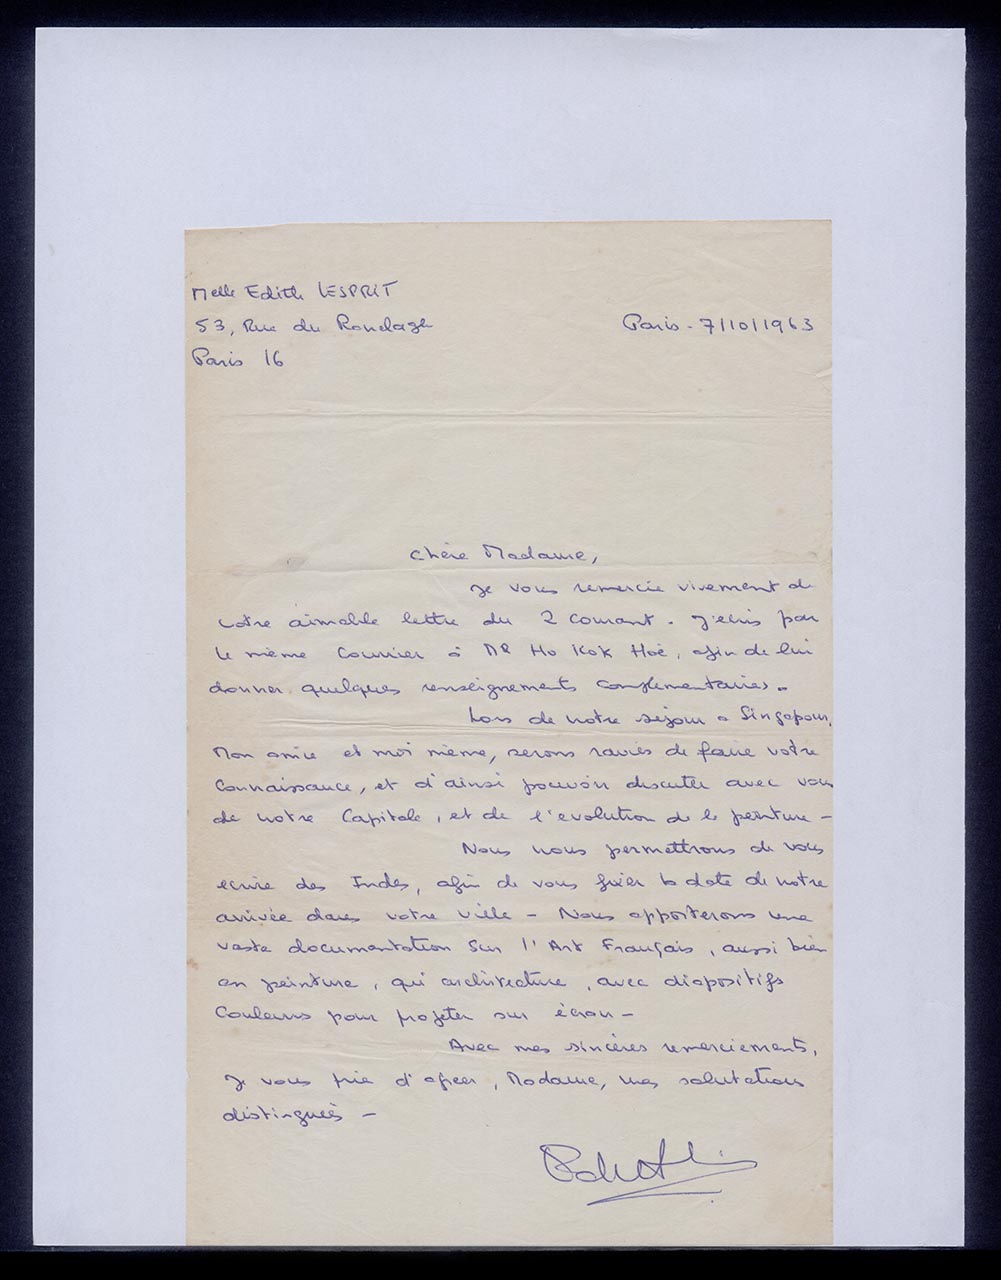 Melle Edith LESPRIT
53, Rue du Ranelagh
Paris 16
Paris - 7/10/1963
Chère Madame,
Je vous remercie vivement de
votre aimable lettre du 2 courant. J'écris par
le même courrier à MR Ho Kok Hoé, afin de lui
donner quelques renseignements complementaires.
Lors de notre séjour a Singapour,
Mon amie et moi même, serons ravies de faire votre
connaissance, et d'ainsi pouvoir discuter avec vous
de notre Capitale, et de l'evolution de la peinture -
Nous nous permettrons de vous
ecrire des Indes, afin de vous fixer la date de notre
arrivée dans votre ville - Nous apporterons une
vaste documentation sur l'Art Français, aussi bien
en peinture, qu'architecture, avec diapositifs
Couleurs pour projeter sur écran -
Avec mes sincères remerciements,
Je vous prie d'agreer, Madame, mes salutations
distinguées -